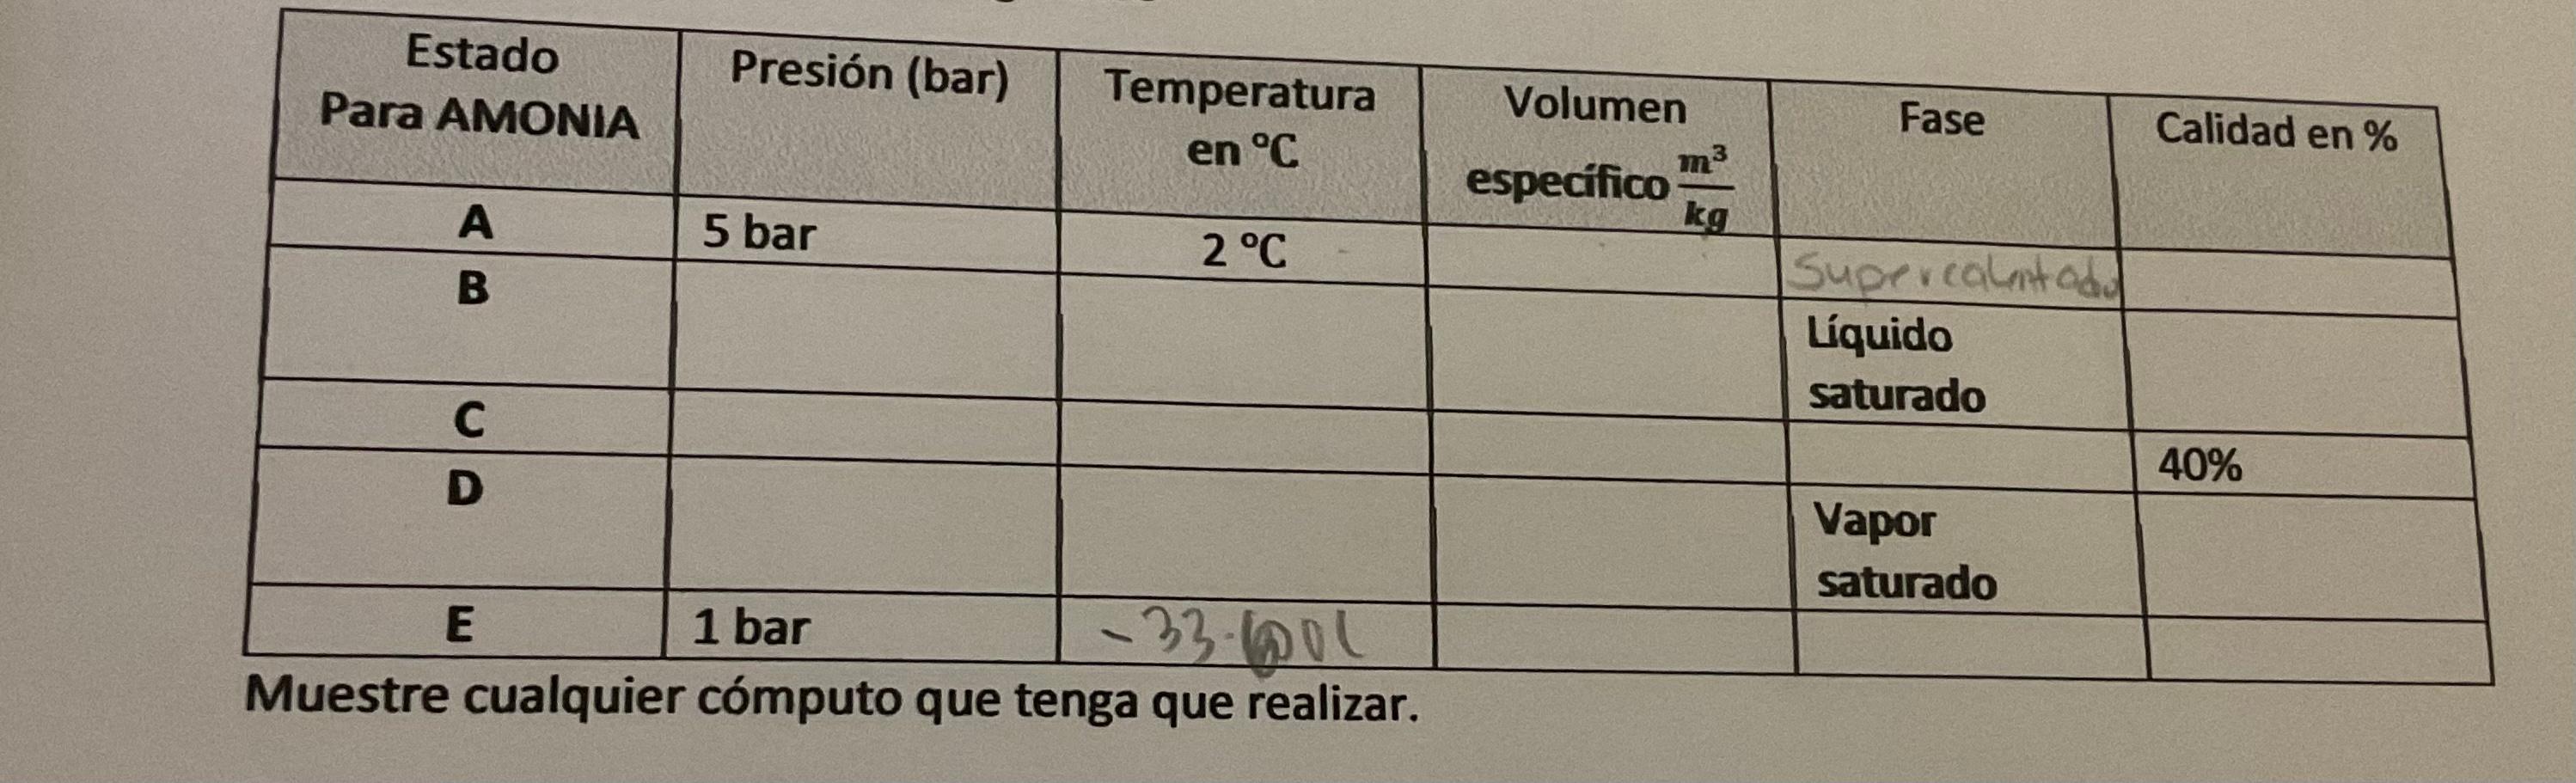 Estado
Para AMONIA
Presión (bar)
Temperatura
en °C
Volumen
específico m³/kg
Fase
Calidad en %
A
5 bar
2 °C
Supercalentado
B
Líquido
saturado
C
40%
D
Vapor
saturado
E
1 bar
Muestre cualquier cómputo que tenga que realizar.